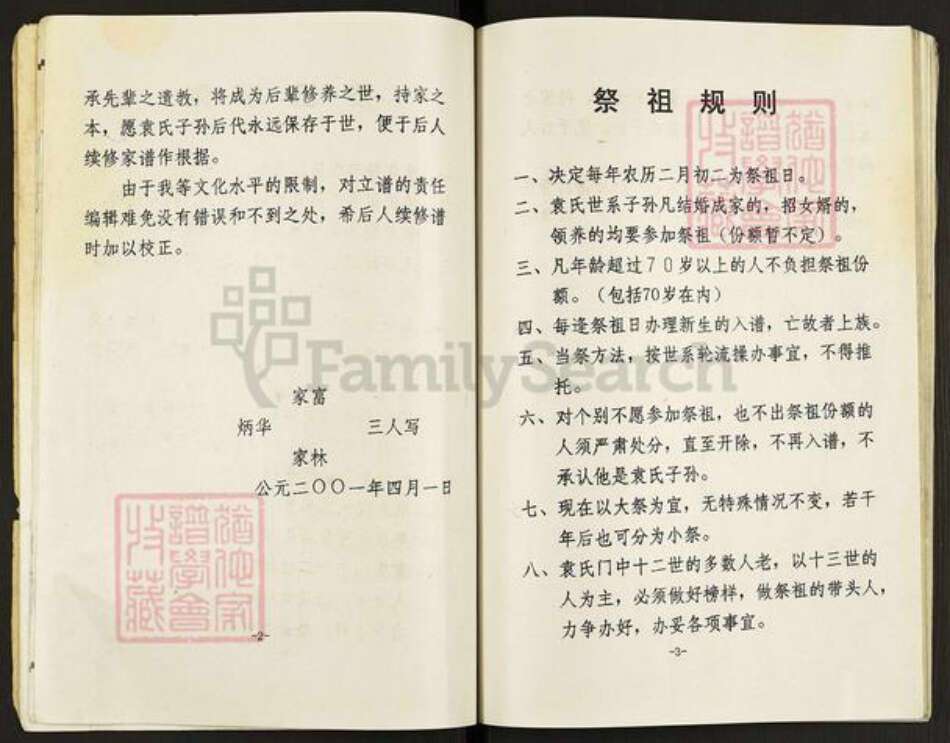 承先辈之遗教，将成为后辈修养之世，持家之
本，愿袁氏子孙后代永远保存于世，便于后人
续修家谱作根据。
由于我等文化水平的限制，对立谱的责任
编辑难免没有错误和不到之处，希后人续修谱
时加以校正。
家富
炳华 三人写
家林
公元二〇〇一年四月一日
-2-
祭祖规则
一、决定每年农历二月初二为祭祖日。
二、袁氏世系子孙凡结婚成家的，招女婿的，
领养的均要参加祭祖（份额暂不定）。
三、凡年龄超过70岁以上的人不负担祭祖份
额。（包括70岁在内）
四、每逢祭祖日办理新生的入谱，亡故者上族。
五、当祭方法，按世系轮流操办事宜，不得推
托。
六、对个别不愿参加祭祖，也不出祭祖份额的
人须严肃处分，直至开除，不再入谱，不
承认他是袁氏子孙。
七、现在以大祭为宜，无特殊情况不变，若干
年后也可分为小祭。
八、袁氏门中十二世的多数人老，以十三世的
人为主，必须做好榜样，做祭祖的带头人，
力争办好，办妥各项事宜。
-3-
FamilySearch